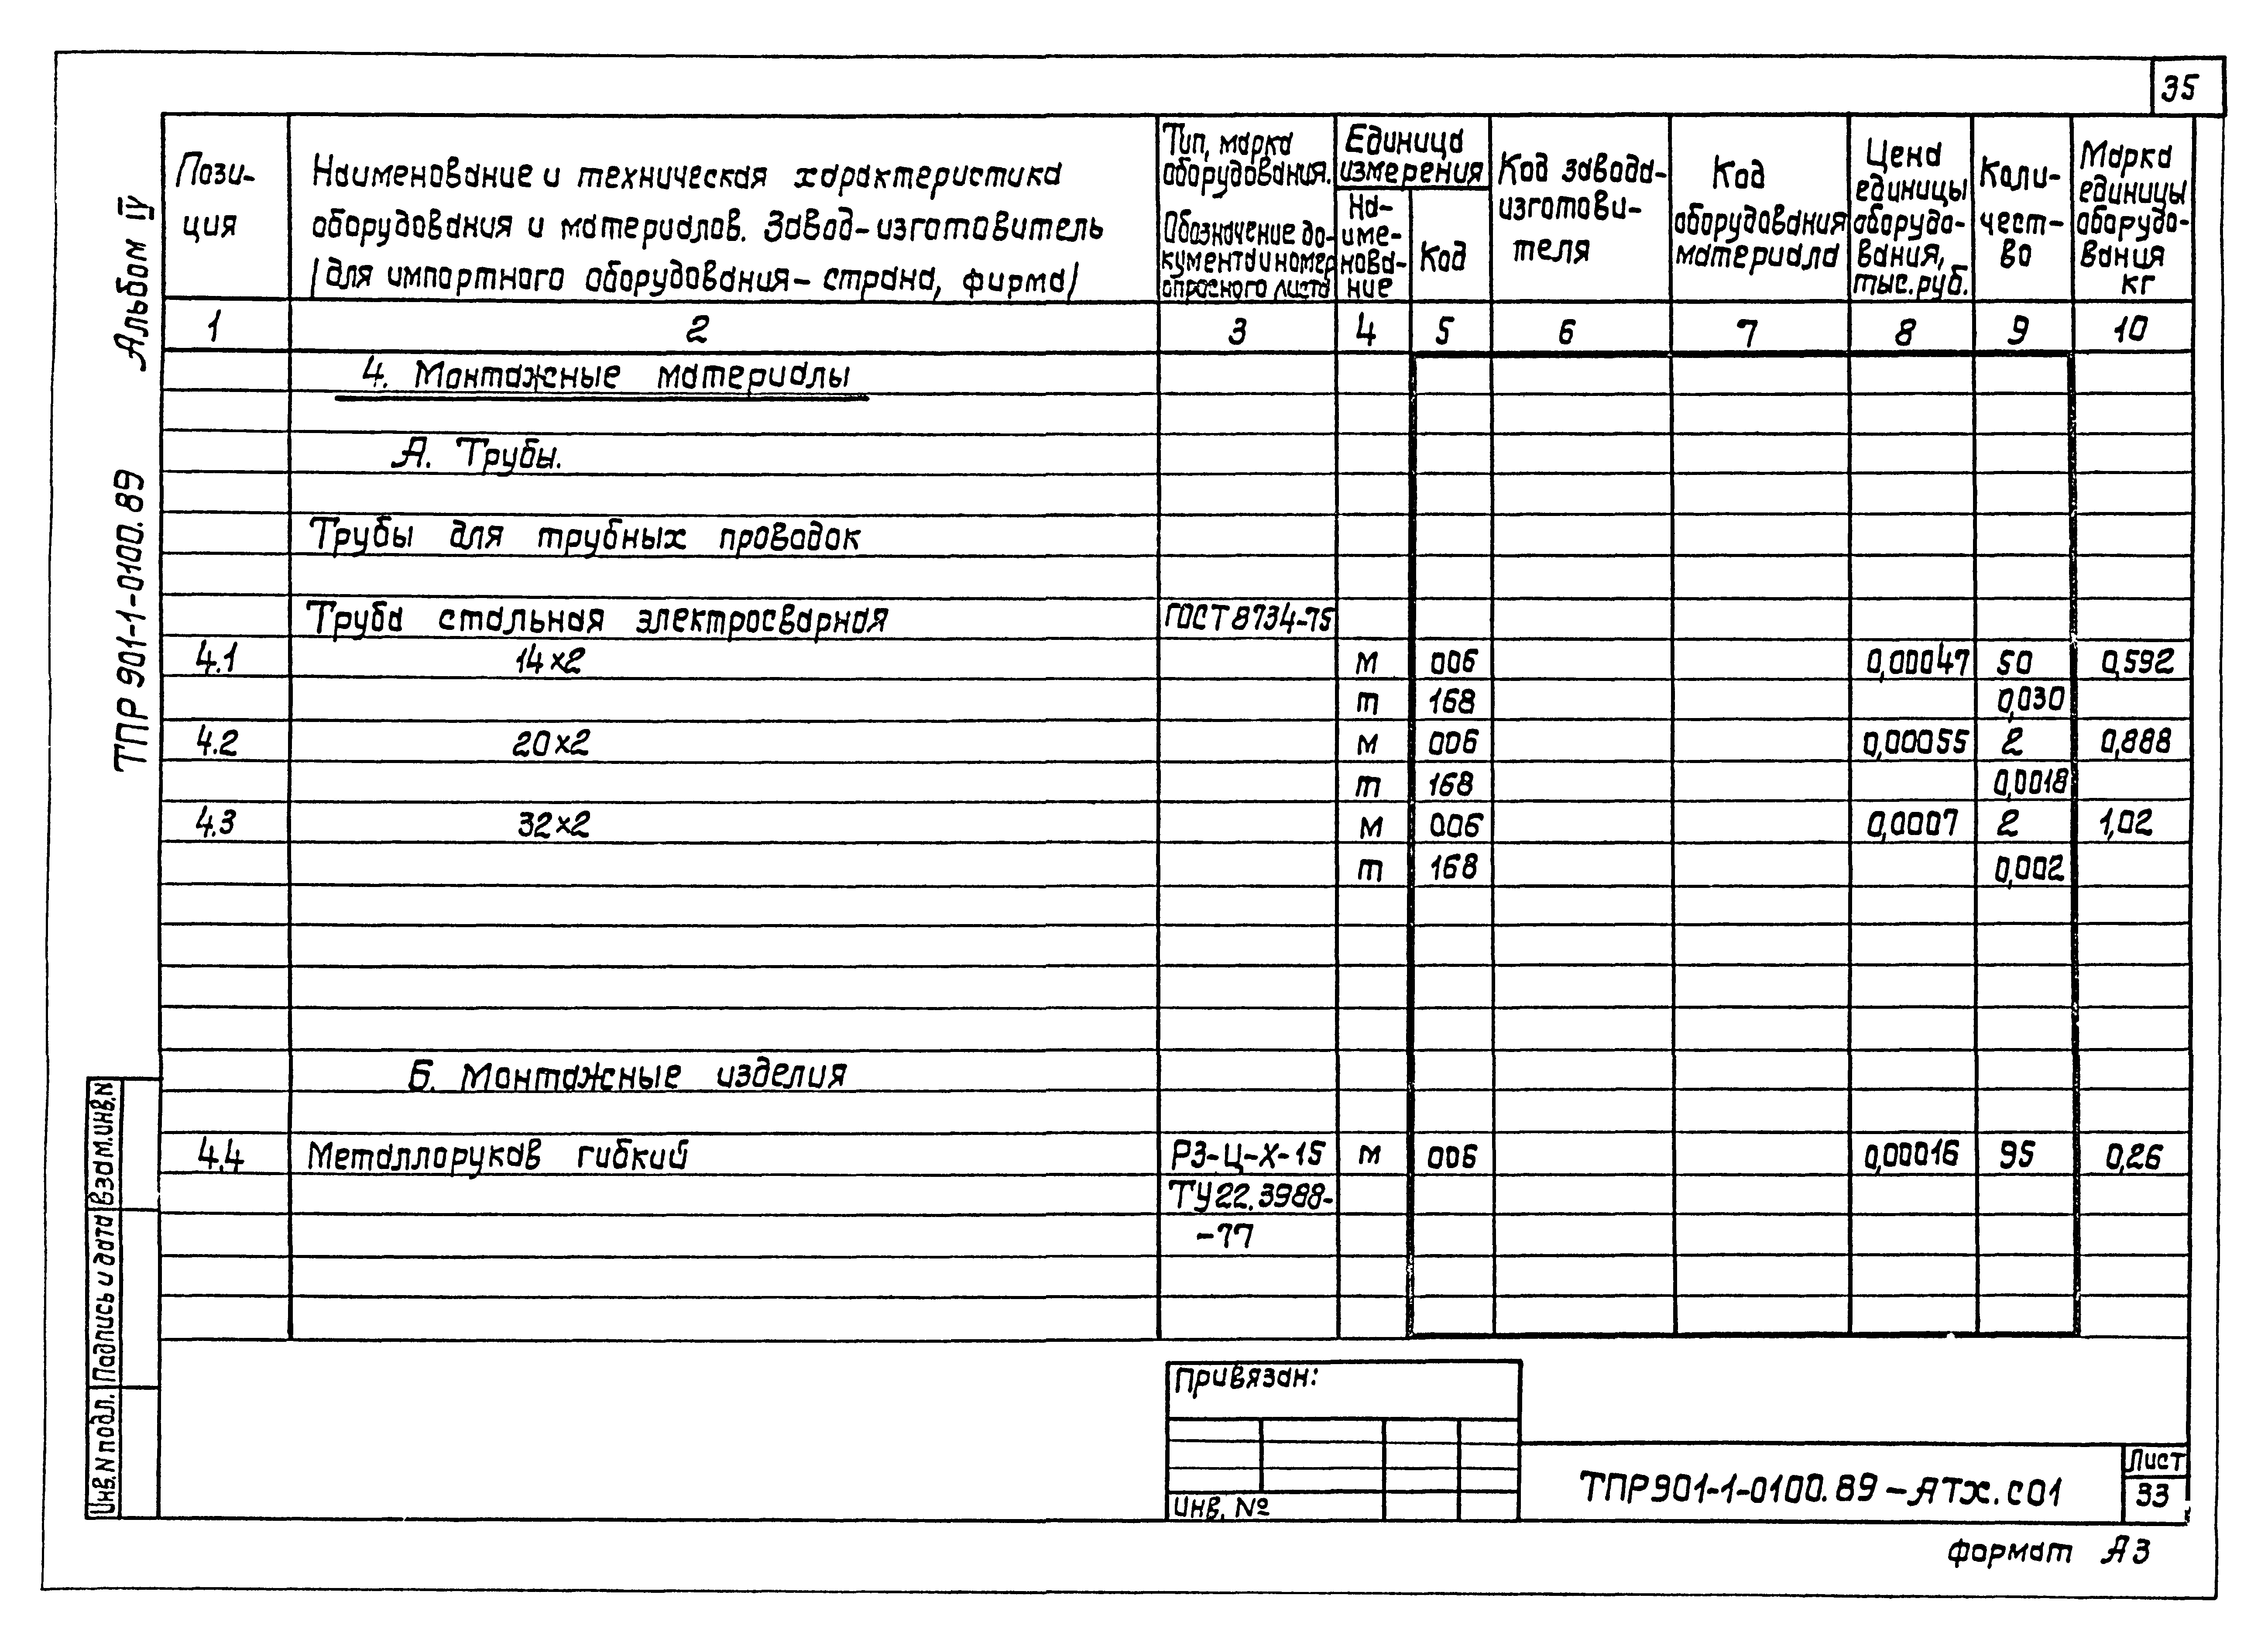 35
Альбом IV
ТПР 901-1-0100.89
Пози-
ция
Наименование и техническая характеристика
оборудования и материалов. Завод-изготовитель
/для импортного оборудования - страна, фирма/
Тип, марка
оборудования.
Обозначение до-
кумента и номер
опросного листа
Единица
измерения
На-
име-
нова-
ние
Код
Код завода-
изготови-
теля
Код
оборудования
материала
Цена
единицы
оборудо-
вания,
тыс.руб.
Коли-
чест-
во
Марка
единицы
оборудо-
вания
кг
1 2 3 4 5 6 7 8 9 10
4. Монтажные материалы
А. Трубы.
Трубы для трубных проводок
Труба стальная электросварная ГОСТ 8734-75
4.1 14х2 м 006 0,00047 50 0,592
т 168 0,030
4.2 20х2 м 006 0,00055 2 0,888
т 168 0,0018
4.3 32х2 м 006 0,0007 2 1,02
т 168 0,002
Б. Монтажные изделия
4.4 Металлорукав гибкий РЗ-Ц-Х-15 м 006 0,00016 95 0,26
ТУ22.3988-
-77
Взам.инв.N
Подпись и дата
Инв.N подл.
Привязан:
Инв. №
ТПР901-1-0100.89-АТХ.С01
Лист
33
формат А3